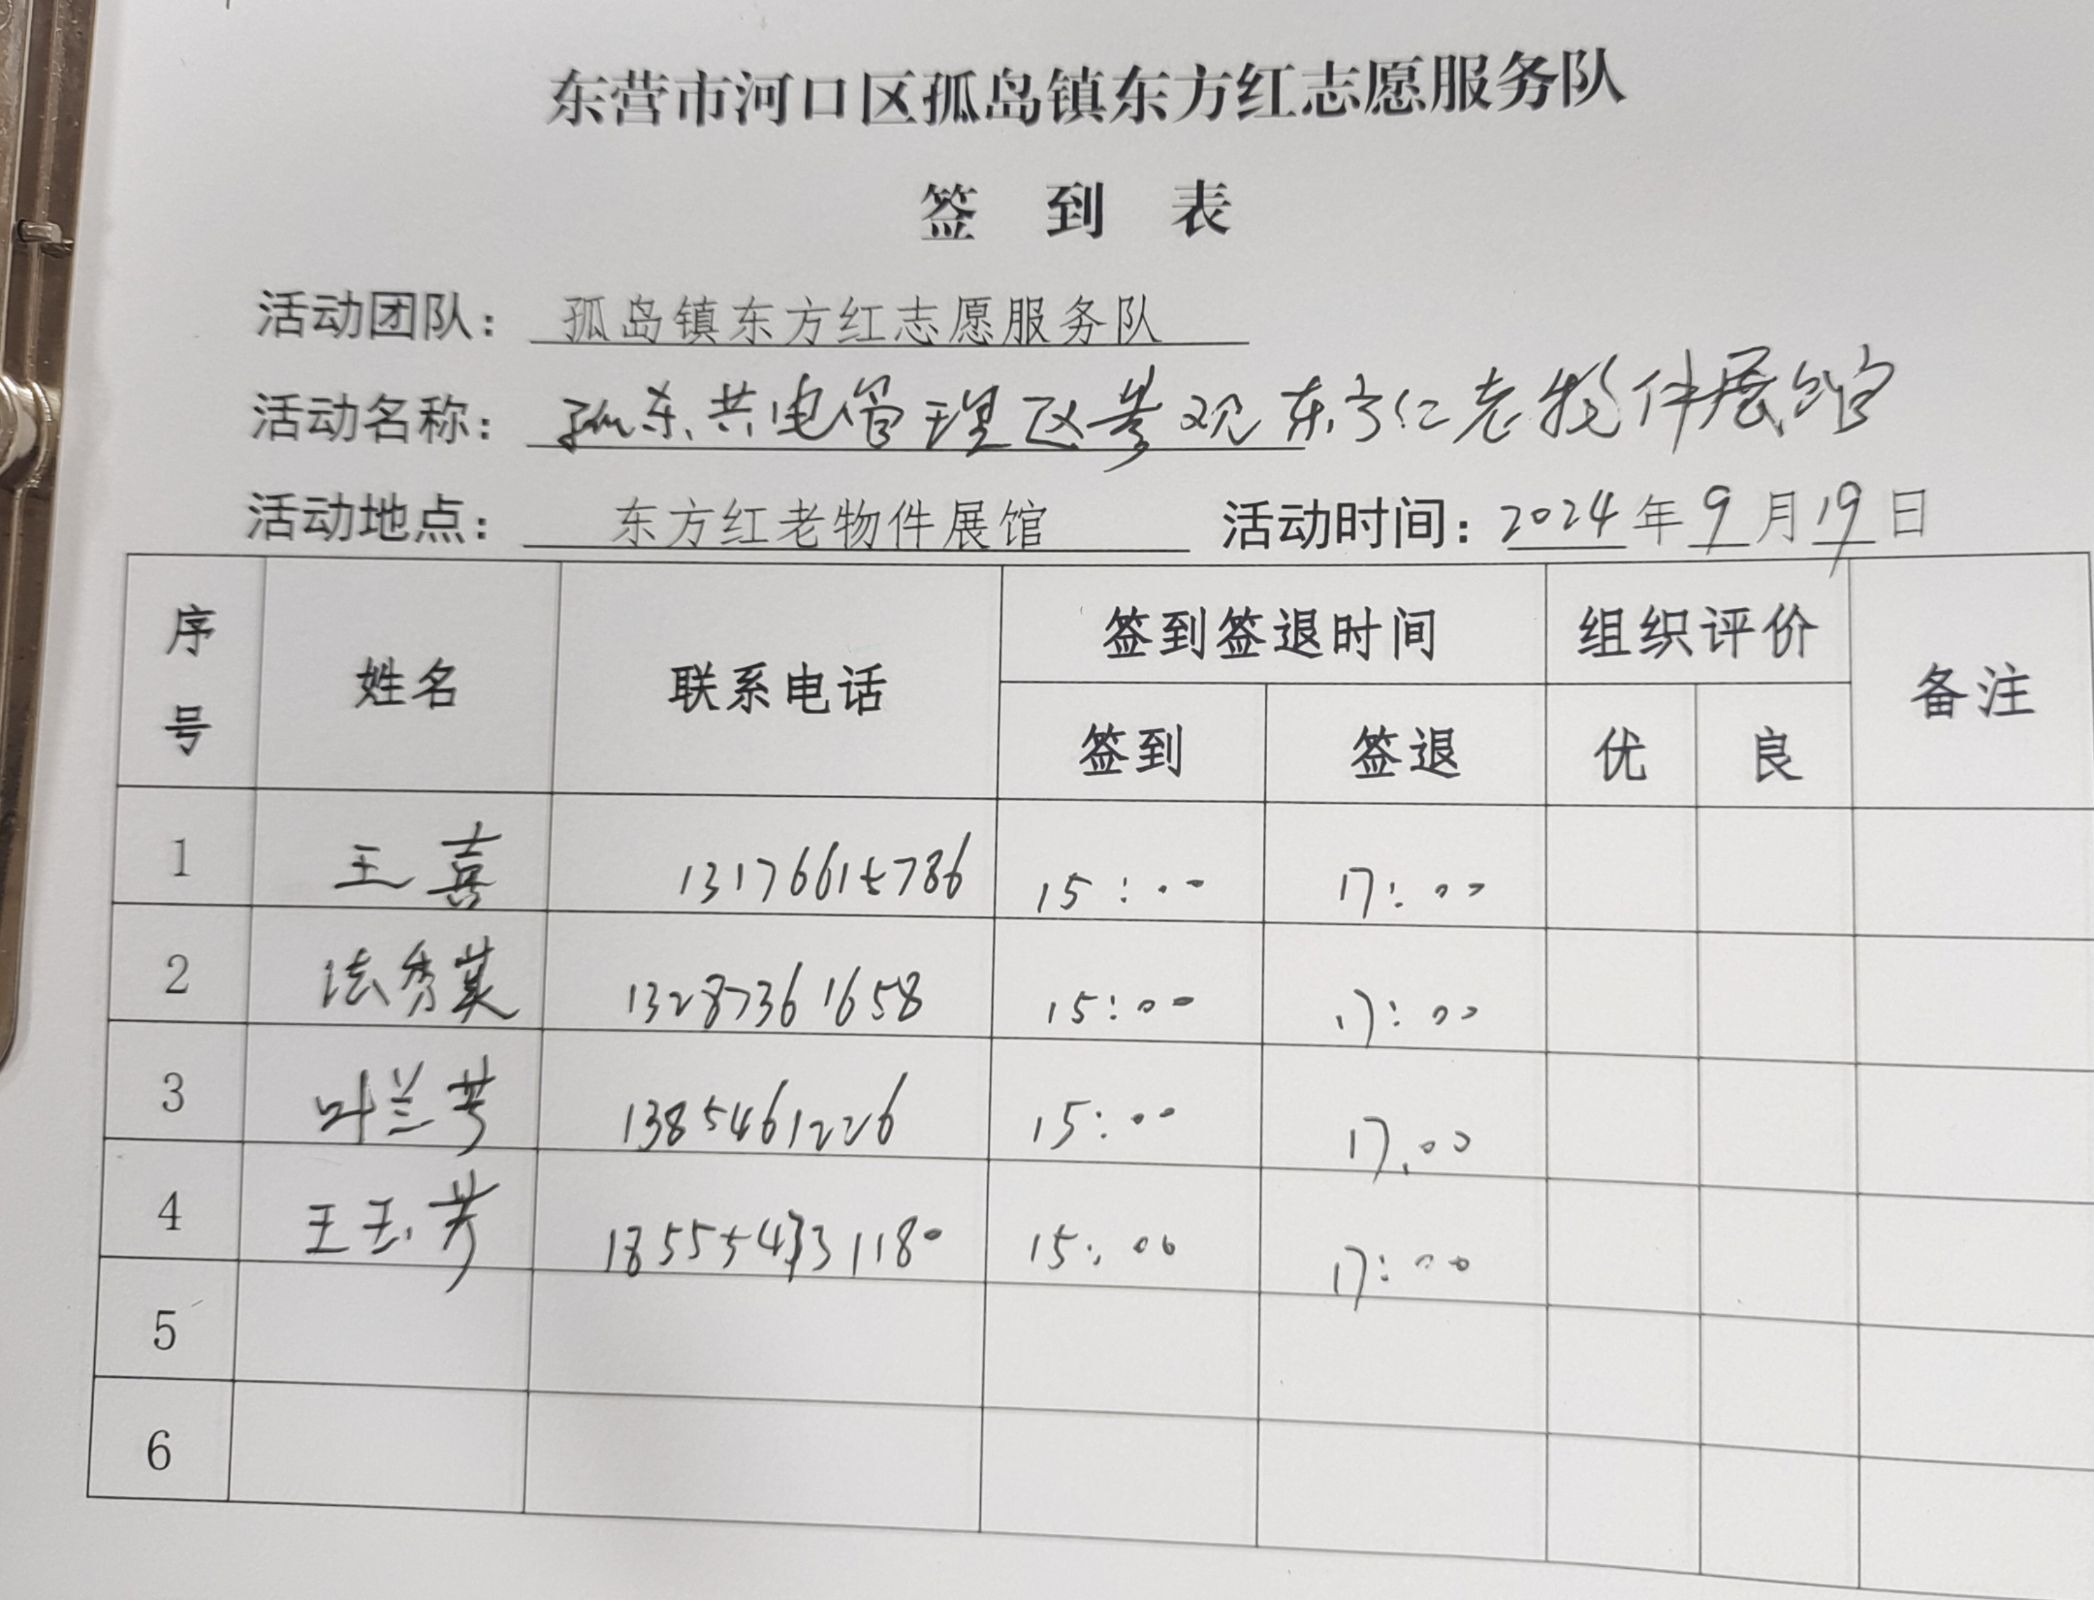 东营市河口区孤岛镇东方红志愿服务队
签 到 表
活动团队： 孤岛镇东方红志愿服务队
活动名称： 孤东共电管理区参观东方红老物件展馆
活动地点： 东方红老物件展馆 活动时间：2024年9月19日
序号 姓名 联系电话 签到签退时间 组织评价 备注
签到 签退 优 良
1 王喜 13176615786 15:00 17:00
2 法秀英 13287361658 15:00 17:00
3 叶兰芳 1385461226 15:00 17.00
4 王玉芳 15:00 17:00
5
6